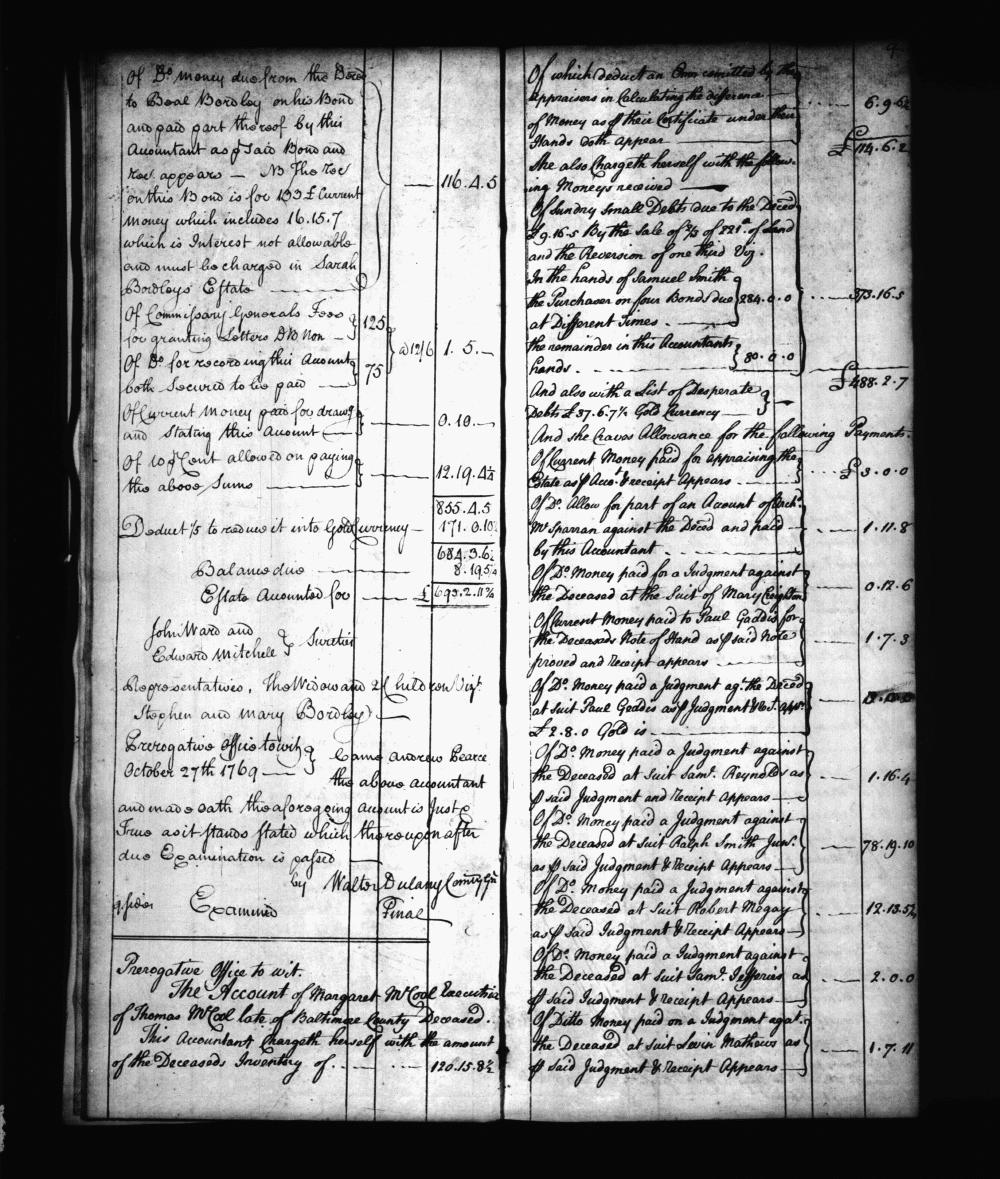 Of Do. money due from the Deced
to Beal Bordley on his Bond
and paid part thereof by this
Accountant as ⅌ Said Bond and
Rec appears — NB The Rec
on this Bond is for 133£ Current
money which includes 16.15.7
which is Interest not allowable
and must be charged in Sarah
Bordleys Estate — 116.4.5
Of Commissary Generals Fees
for granting Letters D B Non — 125
Of Do. for recording this Account
both Secured to be paid — 75 @ 12/6 1.5.—
Of Current Money paid for drawg
and Stating this Account — 0.10.—
Of 10 ⅌ Cent allowed on paying
the above Sums — 12.19.4¼
855.4.5
Deduct 1/5 to reduce it into Gold Currency — 171.0.10
684.3.6½
Balance due — 8.19.5¼
Estate Accounted for — £ 693.2.11¾
John Ward and
Edward Mitchell } Sureties
Representatives, The Widow and 2 Children Vizt.
Stephen and Mary Bordley
Prerogative Office to wit
October 27th 1769 — } Came Andrew Pearce
the above accountant
and made oath the aforegoing account is Just &
True as it stands stated which thereupon after
due Examination is passed
by Walter Dulany Comry Gnl
9. sides Examined Final
Prerogative Office to wit.
The Account of Margaret McCool Executrix
of Thomas McCool late of Baltimore County Deceased.
This Accountant Chargeth herself with the amount
of the Deceaseds Inventory of — 120.15.8½
Of which deduct an Error comitted by the
appraisers in Calculating the difference
of Money as ⅌ their Certificate under their
Hands doth appear — 6.9.6½
£114.6.2
She also Chargeth herself with the follow-
ing Moneys received —
Of Sundry Small Debts due to the Deced
£9.16.5 By the Sale of ⅔ of 221a. of Land
and the Reversion of one third Viz.
In the hands of Samuel Smith
the Purchaser on four Bonds due } 284.0.0 — 373.16.5
at Different Times. —
the remainder in this Accountants
hands. — } 80.0.0
£488.2.7
And also with a List of Desperate
Debts £37.6.7½ Gold Currency —
And she Craves Allowance for the following Payments.
Of Current Money paid for appraising the
Estate as ⅌ Acct. & receipt Appears — £3.0.0
Of Do. Allow for part of an Account of
McSparran against the Deced and paid — 1.11.8
by this Accountant —
Of Do. Money paid for a Judgment against
the Deceased at the Suit of Mary Creighton — 0.12.6
Of Current Money paid to Paul Gaddis for
the Deceaseds Note of Hand as ⅌ said Note — 1.7.3
proved and Receipt appears —
Of Do. Money paid a Judgment agt. the Deced
at suit Paul Geadis as ⅌ Judgment & Rect. appr.
£2.8.0 Gold is —
Of Do. Money paid a Judgment against
the Deceased at Suit Saml. Reynolds as — 1.16.4
⅌ said Judgment and Receipt Appears —
Of Do. Money paid a Judgment against
the Deceased at Suit Ralph Smith Junr. — 78.19.10
as ⅌ said Judgment & Receipt Appears —
Of Do. Money paid a Judgment against
the Deceased at Suit Robert Megay — 12.13.5½
as ⅌ said Judgment & Receipt Appears —
Of Do. Money paid a Judgment against
the Deceased at Suit Saml. Jefferies as — 2.0.0
⅌ said Judgment & receipt Appears —
Of Ditto Money paid on a Judgment agat.
the Deceased at Suit Levin Mathews as — 1.7.11
⅌ said Judgment & Receipt Appears —